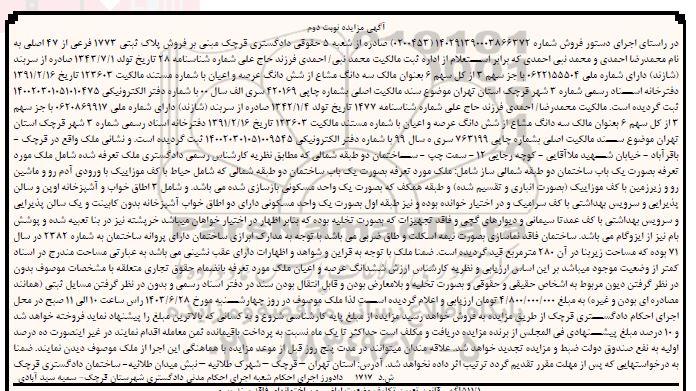 آگهی مزایده نوبت دوم
در راستای اجرای دستور فروش شماره ۱۴۰۲۹۱۳۹۰۰۰۳۸۶۶۳۷۲ (۰۲۰۰۴۵۳) صادره از شعبه ۵ حقوقی دادگستری قرچک مبنی بر فروش پلاک ثبتی ۱۷۷۳ فرعی از ۴۷ اصلی به
نام محمدرضا احمدی و محمد نبی احمدی که برابر استعلام از اداره ثبت مالکیت محمد نبی/ احمدی فرزند حاج علی شماره شناسنامه ۲۸ تاریخ تولد ۱۳۴۳/۷/۱ صادره از سربند
(شازند) دارای شماره ملی ۰۶۲۲۱۵۵۵۰۴ با جز سهم ۳ از کل سهم ۶ بعنوان مالک سه دانگ مشاع از شش دانگ عرصه و اعیان با شماره مستند مالکیت ۱۲۳۶۰۳ تاریخ ۱۳۹۱/۲/۱۶
دفترخانه اسناد رسمی شماره ۳ شهر قرچک استان تهران موضوع سند مالکیت اصلی بشماره چاپی ۴۲۰۱۶۹ سری الف سال ۰۰ با شماره دفتر الکترونیکی ۱۴۰۰۲۰۳۰۱۰۵۱۰۱۰۴۷۵
ثبت گردیده است. مالکیت محمدرضا/ احمدی فرزند حاج علی شماره شناسنامه ۱۴۷۷ تاریخ تولد ۱۳۴۲/۱/۴ صادره از سربند (شازند) دارای شماره ملی ۰۶۲۰۸۶۹۹۱۷ با جز سهم
۳ از کل سهم ۶ بعنوان مالک سه دانگ مشاع از شش دانگ عرصه و اعیان با شماره مستند مالکیت ۱۲۳۶۰۳ تاریخ ۱۳۹۱/۲/۱۶ دفترخانه اسناد رسمی شماره ۳ شهر قرچک استان
تهران موضوع سند مالکیت اصلی بشماره چاپی ۷۶۳۱۹۹ سری ه سال ۹۹ با شماره دفتر الکترونیکی ۱۴۰۰۲۰۳۰۱۰۵۱۰۰۹۵۴۵ ثبت گردیده است. و نشانی ملک واقع در قرچک -
باقرآباد - خیابان شهید ملاآقایی - کوچه رجایی ۱۲ - سمت چپ - ساختمان دو طبقه شمالی که مطابق نظریه کارشناس رسمی دادگستری ملک تعرفه شده شامل ملک مورد
تعرفه بصورت یک باب ساختمان دو طبقه شمالی ساز شامل: ملک مورد تعرفه بصورت یک باب ساختمان دو طبقه شمالی که شامل حیاط با کف موزاییک با ورودی آدم رو و ماشین
رو و زیرزمین با کف موزاییک (بصورت انباری و تقسیم شده) و طبقه همکف که بصورت یک واحد مسکونی بازسازی شده می باشد. و شامل ۲ اطاق خواب و آشپزخانه اوپن و سالن
پذیرایی و سرویس بهداشتی با کف سرامیک و در اختیار خوانده بوده و نیز طبقه اول بصورت یک واحد مسکونی دارای دو اطاق خواب آشپزخانه بدون کابینت و یک سالن پذیرایی
و سرویس بهداشتی با کف عمدتا سیمانی و دیوارهای گچی و فاقد تجهیزات که بصورت تخلیه بوده که بنابر اظهار در اختیار خواهان میباشد خرپشته نیز در بنا تعبیه شده و پوشش
بام نیز از ایزوگام می باشد. ساختمان فاقد نماسازی بصورت نیمه اسکلت و طاق ضربی می باشد با توجه به مدارک ابرازی ساختمان دارای پروانه ساختمان به شماره ۲۳۸۲ در سال
۷۱ بوده که مساحت زیربنا در آن ۲۸۰ مترمربع قید گردیده است. ضمنا ملک با توجه به قراین و شواهد و اظهارات دارای عقب نشینی می باشد به عبارتی مساحت مندرج در اسناد
کمتر از وضعیت موجود میباشد بر این اساس ارزیابی و نظریه کارشناس ارزش ششدانگ عرصه و اعیان ملک مورد تعرفه بانضمام حقوق تجاری متعلقه با مشخصات موصوف بدون
در نظر گرفتن دیون مربوط به اشخاص حقیقی و حقوقی و بصورت تخلیه و بلامعارض بودن و قابل انتقال بودن سند در دفتر اسناد رسمی و بدون در نظر گرفتن مسایل ثبتی (همانند
مصادره ای بودن و غیره) به مبلغ ۴/۸۰۰/۰۰۰/۰۰۰ تومان ارزیابی و اعلام گردیده است لذا ملک موصوف در روز چهارشنبه مورخ ۱۴۰۳/۶/۲۸ راس ساعت ۱۰ الی ۱۱ صبح در محل
اجرای احکام دادگستری قرچک از طریق مزایده به فروش خواهد رسید مزایده از مبلغ پایه کارشناسی شروع و به کسانی که بالاترین مبلغ را پیشنهاد نماید فروخته خواهد شد
و ۱۰ درصد مبلغ پیشنهادی فی المجلس از برنده مزایده دریافت و مکلف است حداکثر تا یک ماه نسبت به پرداخت باقیمانده ثمن معامله اقدام نمایند در غیر اینصورت ده درصد
اولیه به نفع صندوق دولت ضبط و مزایده تجدید خواهد شد. علاقه مندان میتوانند در مدت پنج روز قبل از موعد مزایده با هماهنگی این اجرا از ملک موصوف دیدن نمایند. ضمنا
به درخواستهایی که پس از مهلت مقرر تقدیم گردد ترتیب اثر داده نخواهد شد. آدرس: استان تهران - قرچک - شهرک طلائیه - نبش میدان طلائیه - ساختمان دادگستری قرچک
ش.د ۱۷۱۷ دادورز اجرای احکام شعبه اجرای احکام مدنی دادگستری شهرستان قرچک- سمیه سید آبادی